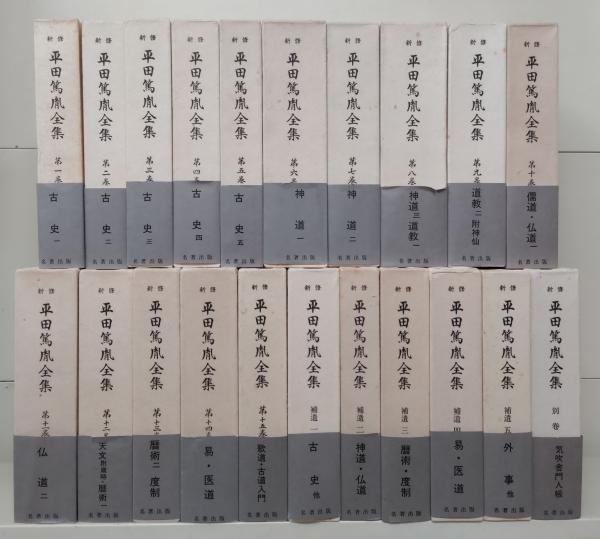 新修 平田篤胤全集 第一巻 古史 一 名著出版
新修 平田篤胤全集 第二巻 古史 二 名著出版
新修 平田篤胤全集 第三巻 古史 三 名著出版
新修 平田篤胤全集 第四巻 古史 四 名著出版
新修 平田篤胤全集 第五巻 古史 五 名著出版
新修 平田篤胤全集 第六巻 神道 一 名著出版
新修 平田篤胤全集 第七巻 神道 二 名著出版
新修 平田篤胤全集 第八巻 神道 三 道教 一 名著出版
新修 平田篤胤全集 第九巻 道教 二 附神仙 名著出版
新修 平田篤胤全集 第十巻 儒道・仏道 一 名著出版
新修 平田篤胤全集 第十一巻 仏道 二 名著出版
新修 平田篤胤全集 第十二巻 天文 附歳時・暦術 一 名著出版
新修 平田篤胤全集 第十三巻 暦術 二 度制 名著出版
新修 平田篤胤全集 第十四巻 易・医道 名著出版
新修 平田篤胤全集 第十五巻 歌道・古道入門 名著出版
新修 平田篤胤全集 補遺 一 古史 他 名著出版
新修 平田篤胤全集 補遺 二 神道・仏道 名著出版
新修 平田篤胤全集 補遺 三 暦術・度制 名著出版
新修 平田篤胤全集 補遺 四 易・医道 名著出版
新修 平田篤胤全集 補遺 五 外事 他 名著出版
新修 平田篤胤全集 別巻 気吹舎門人帳 名著出版